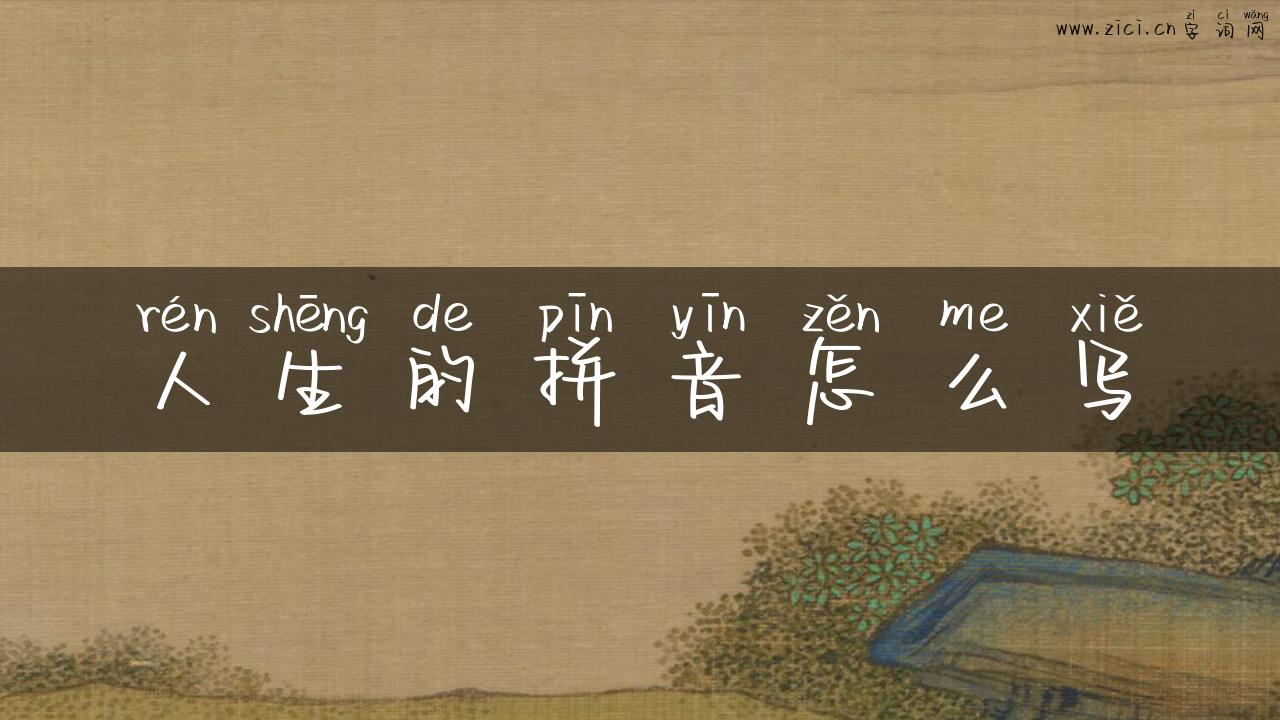 zì cí wǎng
www.zici.cn 字词网
rén shēng de pīn yīn zěn me xiě
人生的拼音怎么写